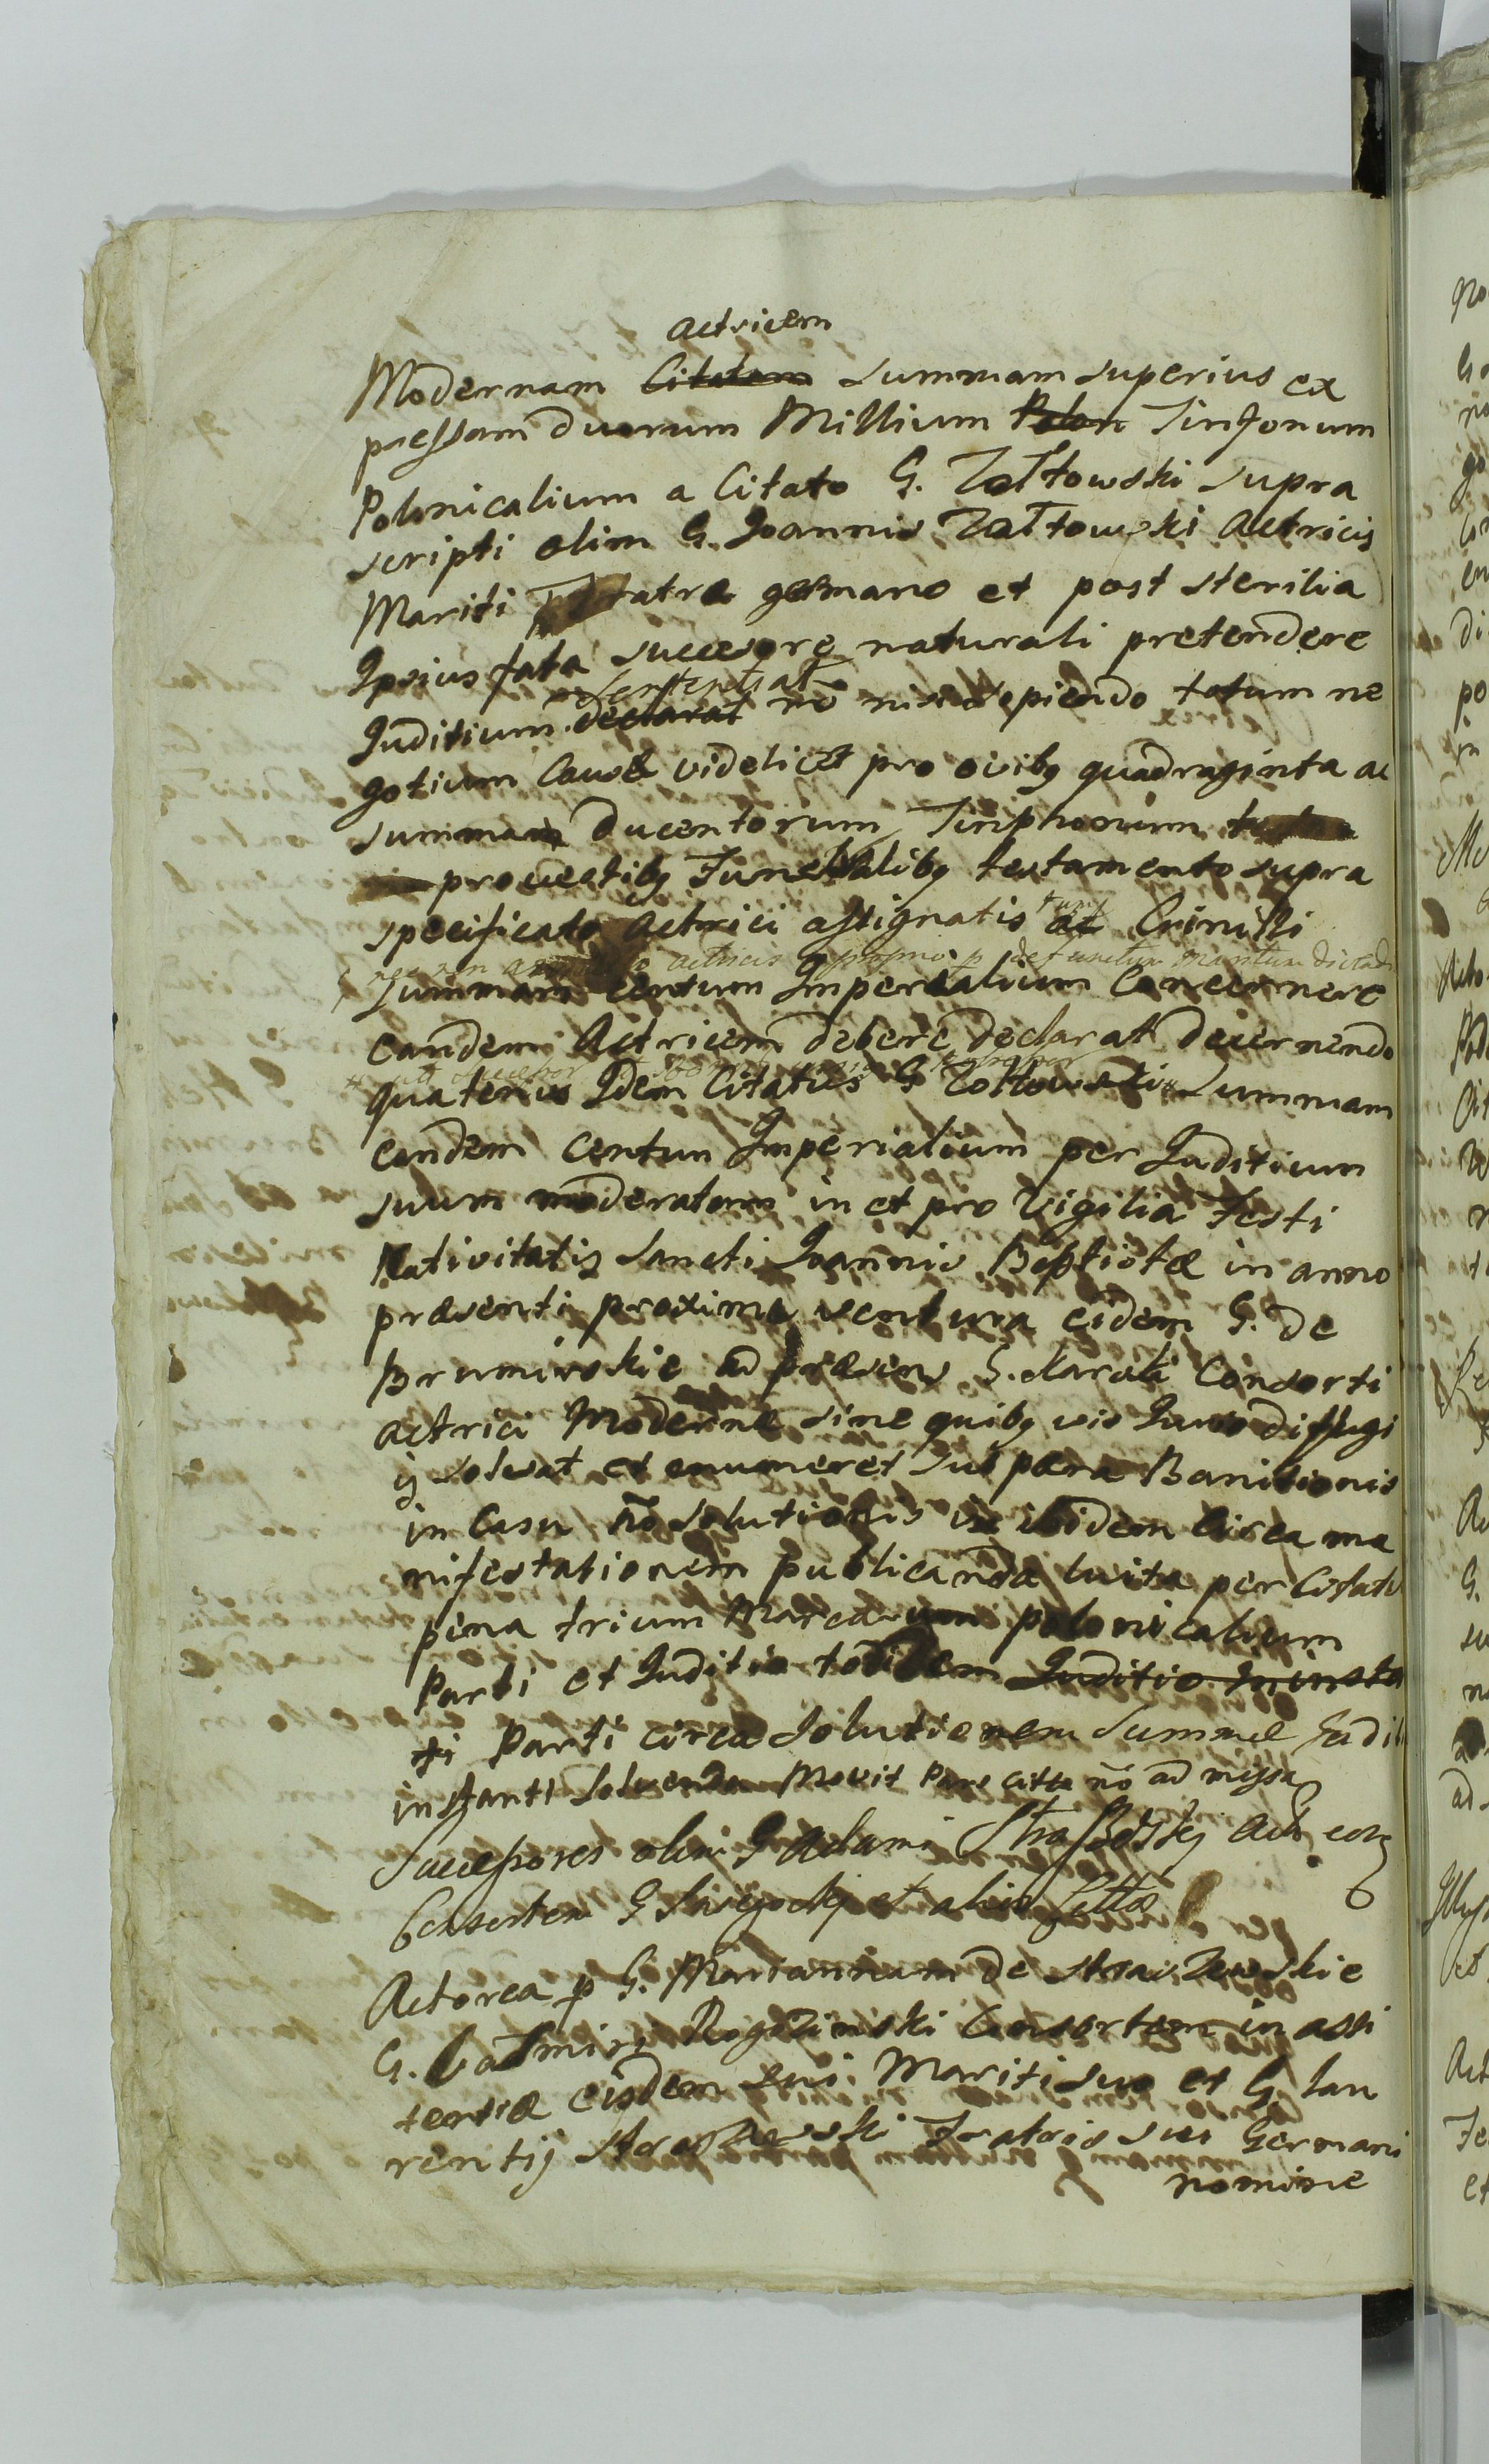 actricem
Modernam Citatam summam superius ex
pressam duorum Millium Polon Tinfonum
Polonicalium a Citato G. Zołtowski supra
scripti olim G. Joannis Zołtowski actricis
Mariti Fratre germano et post sterilia
Ipsius fata successore naturali pretendere
sententiat
Juditium declarat nõ nisi totum ne
gotium causæ videlicet pro ovibꝫ quadraginta ac
summam ducentorum Tinphonum
pro vestibꝫ Funebralibꝫ testamento supra
specificato actrici assignatis ac Crinilli
nec non actricis proprio p defunctum maritum
summam centum Imperialium concernere
eandem Actricem debere declarat decernendo
quatenus Idem Citatus G Zołtowski summam
eandem centum Imperialium per Juditium
suum moderatam in et pro Vigilia Festi
Nativitatis Sancti Joannis Baptistæ in anno
præsenti proxime ventura eidem G. de
Brumirskie ad præsens G. Consorti
actrici Moderne sine quibꝫ vis Juris diffugi
ij solvat et enumeret sub pœna Banitionis
in Casu nõ solutionis ibidem circa ma
nifestationem publicanda luita per Citatu
pœna trium Marcarum polonicalium
Parti et Juditio totidem Juditio in insta
ti Parti circa solutionem summæ Judi
instanti solvenda Movit Pars citta nõ ad missa
Successores olim G Adami act
Consortem G et alios
Actorea p G. Mariannam de Straszewskie
G. Casimiri Rogozinski Consortem in assi
tentia eiusdem sui Mariti suo et G Lau
rentij Straszewski Fratris sui Germani
nomine